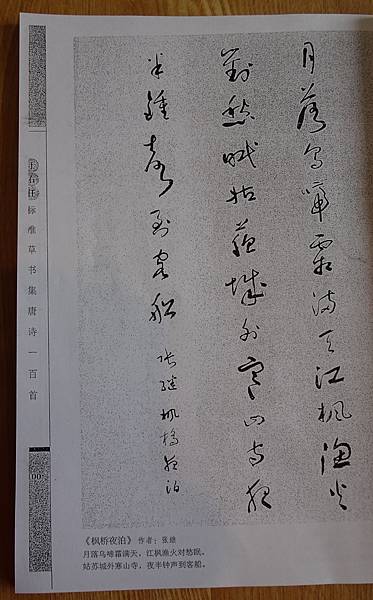 月落烏啼霜滿天江楓漁火
對愁眠姑蘇城外寒山寺夜
半鐘聲到客船
張繼楓橋夜泊
于右任
标准草书集唐诗一百首
《枫桥夜泊》 作者：张继
月落乌啼霜满天，江枫渔火对愁眠。
姑苏城外寒山寺，夜半钟声到客船。